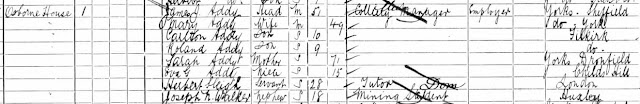 Osborne House 1 James Addy Head M 51 Colliery Manager Employer Yorks Sheffield
Mary Addy Wife M 49 do York
Carlton Addy Son S 10 Felkirk
Roland Addy Son S 9 do
Sarah Addy Mother 71 Yorks Dronfield
Addy Niece S 15 Childs Hill
Herbert Servant S 28 Tutor Dom London
Joseph Walker Nephew S 18 Mining Student